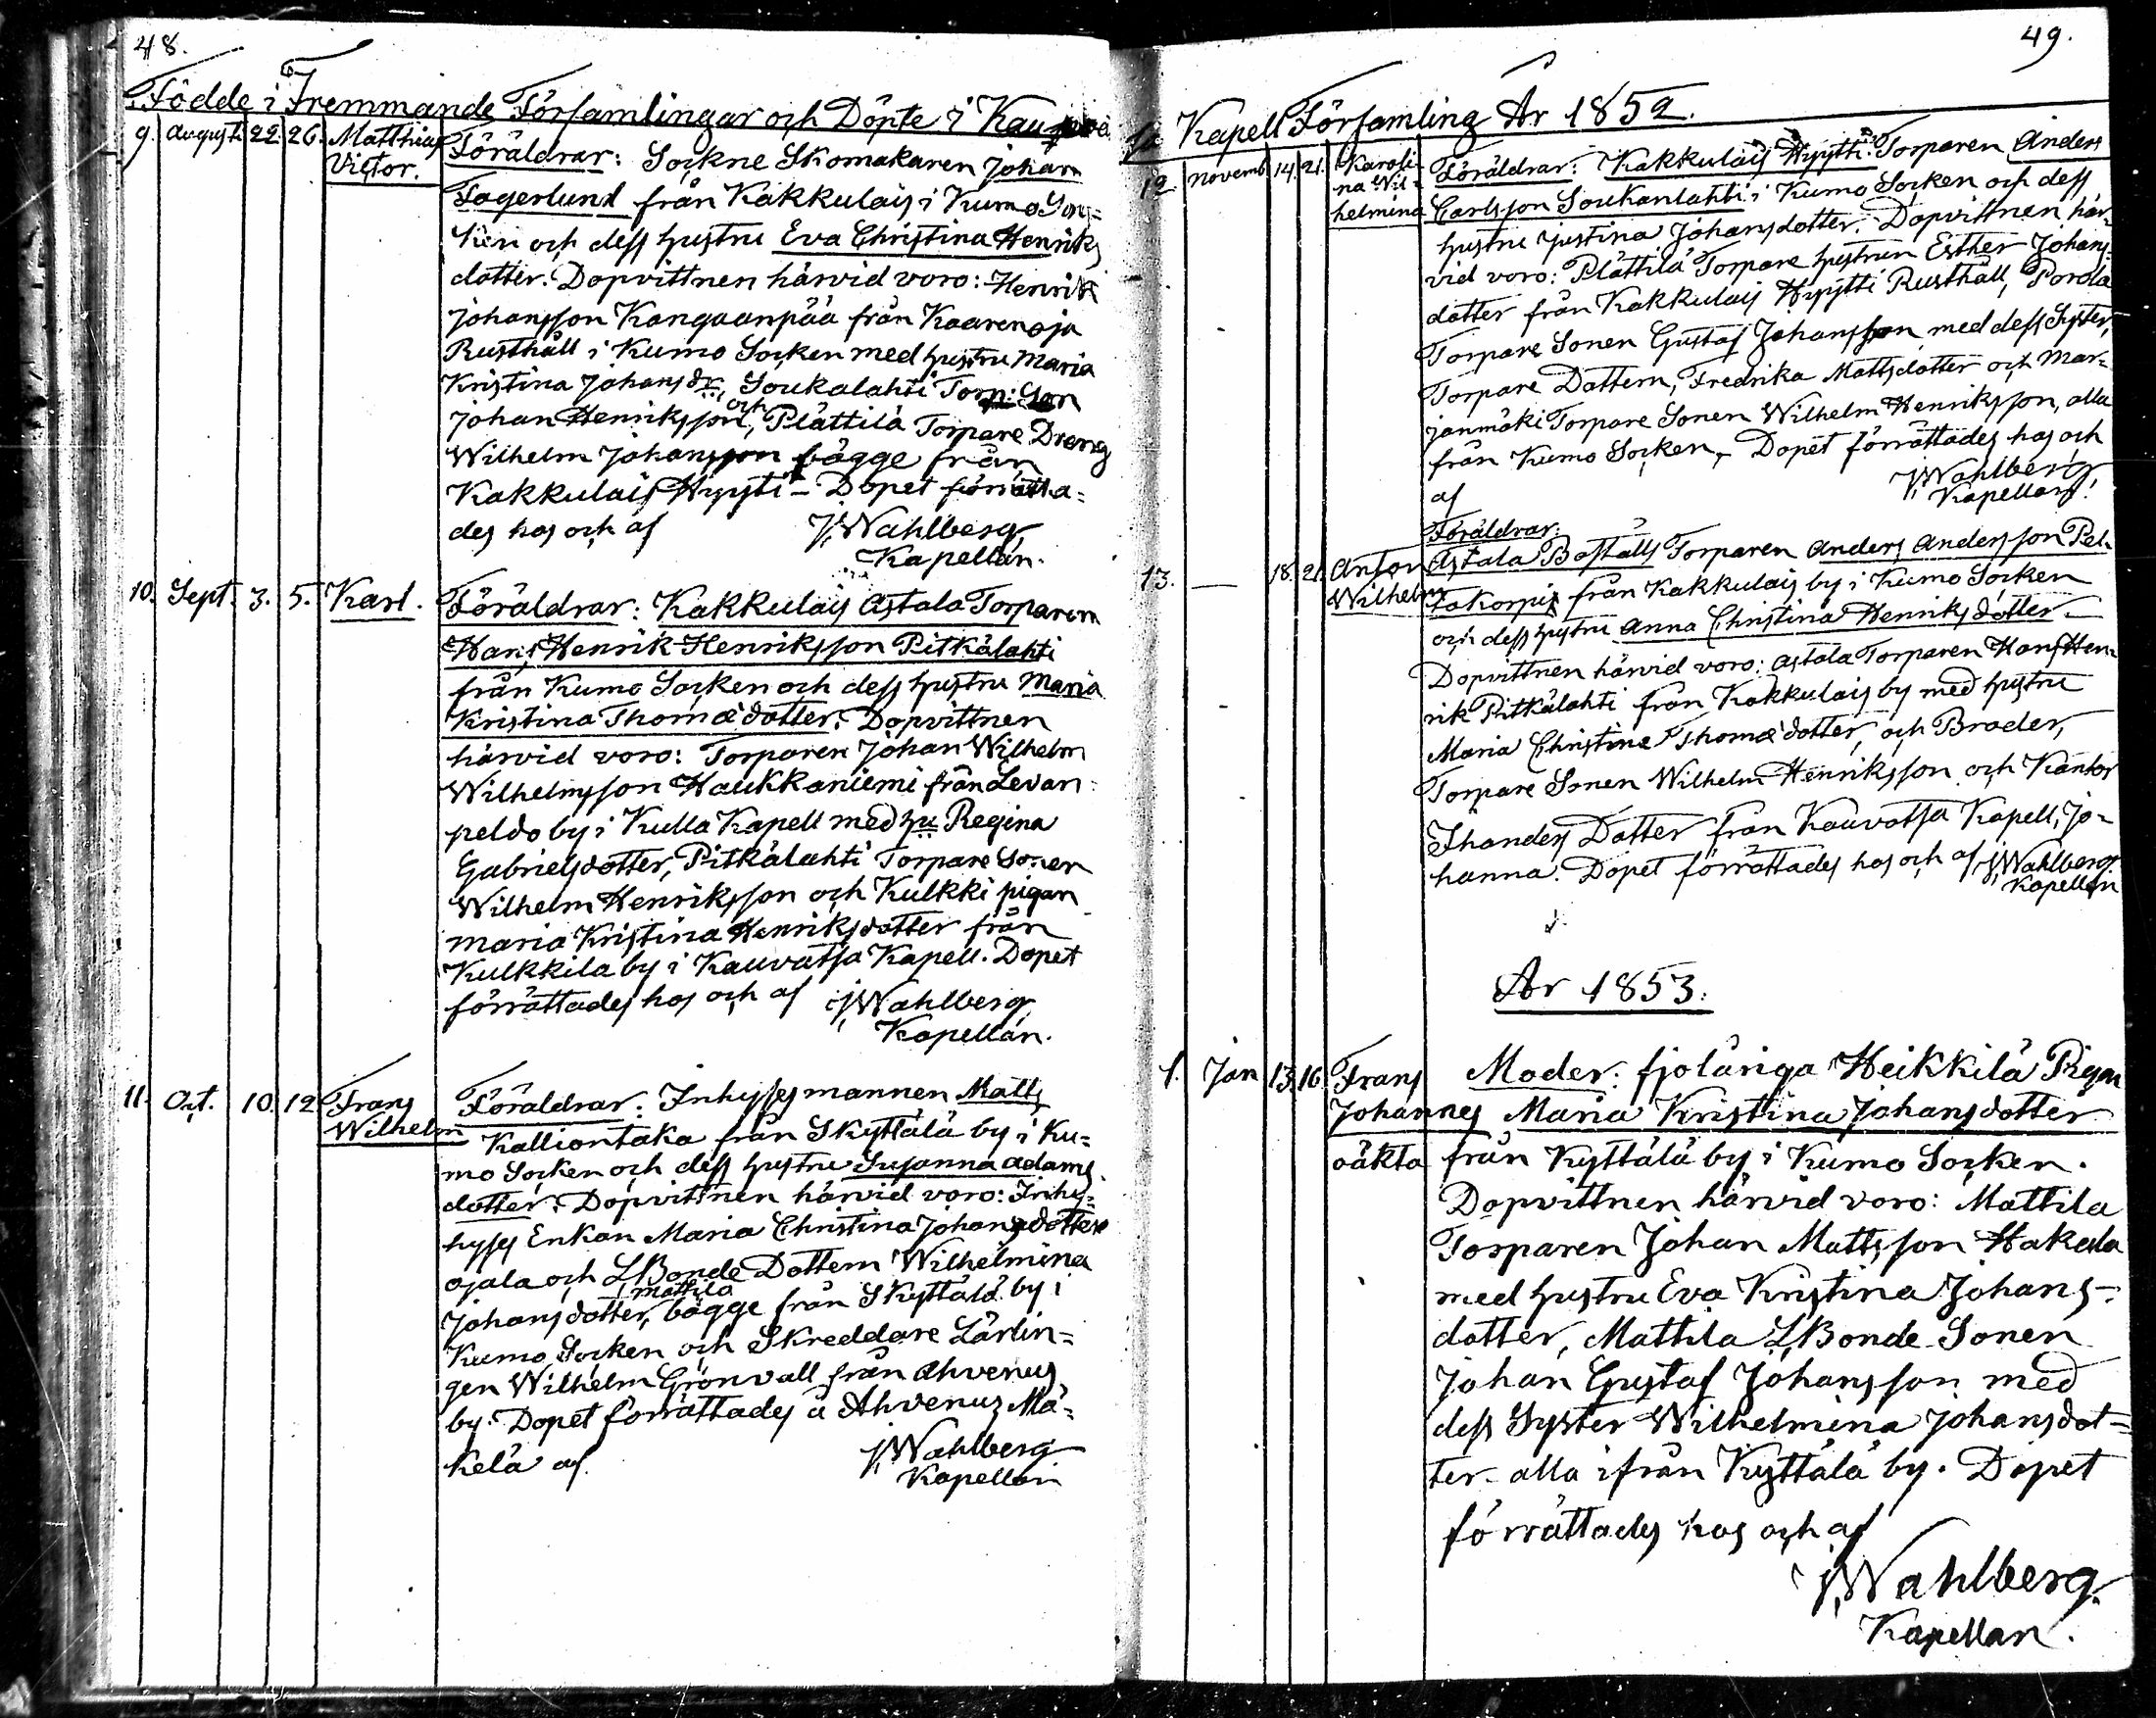 48.
Födde i Fremmande Församlingar och Döpte i Kauva
9. Augusti 22. 26. Matthias Victor.
Föräldrar: Sockne Skomakaren Johan
Fagerlund från Kakkulais i Kumo Soc=
ken och dess hustru Eva Christina Henriks
dotter. Dopvittnen härvid voro: Henrik
Johansson Kangaanpää från Kaarenoja
Rusthåll i Kumo Socken med hustru Maria
Kristina Johansdr, Soukalahti Torp: Son
Johan Henriksson, och Plättilä Torpare Dreng
Wilhelm Johansson bägge från
Kakkulais Hyysti - Dopet förrätta=
des hos och af J. Wahlberg
Kapellan.
10. Sept. 3. 5. Karl.
Föräldrar: Kakkulais Astala Torparen
Hans Henrik Henriksson Pitkälahti
från Kumo Socken och dess hustru Maria
Kristina Thomædotter. Dopvittnen
härvid voro: Torparen Johan Wilhelm
Wilhelmsson Haukkaniemi från Levan=
peldo by i Kulla Kapell med hu Regina
Gabrielsdotter, Pitkälahti Torpare Sonen
Wilhelm Henriksson och Kulkki pigan
Maria Kristina Henriksdotter från
Kulkkila by i Kauvatsa Kapell. Dopet
förrättades hos och af J. Wahlberg
Kapellan.
11. Oct. 10. 12 Frans Wilhelm
Föräldrar: Inhysesmannen Matts
Kalliontaka från Skyttälä by i Ku=
mo Socken och dess hustru Susanna Adams
dotter. Dopvittnen härvid voro: Inhy=
hyses Enkan Maria Christina Johansdotter
Ojala och Mattila L,Bonde Dottern Wilhelmina
Johansdotter, bägge från Skyttälä by i
Kumo Socken och Skreddare Lärlin=
gen Wilhelm Grönvall från Ahvenus
by. Dopet förrättades å Ahvenus Mä=
kelä af J. Wahlberg
Kapellan
49.
Kapell Församling År 1852.
12 Novemb 14. 21. Karoli-
na Wil=
helmina
Föräldrar: Kakkulais Hyysti Torparen Anders
Carlsson Soukanlahti i Kumo Socken och dess
hustru Justina Johansdotter. Dopvittnen här-
vid voro: Plättilä Torpare hustrun Esther Johans-
dotter från Kakkulais Hyysti Rusthåll, Porola
Torpare Sonen Gustaf Johansson med dess Syster,
Torpare Dottern, Fredrika Mattsdotter och Mar=
janmäki Torpare Sonen Wilhelm Henriksson, alla
från Kumo Socken, - Dopet förrättades hos och
af J. Wahlberg
Kapellan.
13. — 18. 21. Anton Wilhelm
Föräldrar:
Astala Boställs Torparen Anders Andersson Pel-
takorpi från Kakkulais by i Kumo Socken
och dess hustru Anna Christina Henriksdotter -
Dopvittnen härvid voro: Astala Torparen Hans Hen
rik Pitkälahti från Kakkulais by med hustru
Maria Christina Thomædotter och Broder,
Torpare Sonen Wilhelm Henriksson och Kantor
Ihanders Dotter från Kauvatsa Kapell, Jo-
hanna. Dopet förrättades hos och af J. Wahlberg
Kapellan
År 1853.
1. Jan 13. 16. Frans
Johannes
oäkta
Moder: fjolåriga Heikkilä Pigan
Maria Kristina Johansdotter
från Kyttälä by i Kumo Socken.
Dopvittnen härvid voro: Mattila
Torparen Johan Mattsson Hakala
med hustru Eva Kristina Johans-
dotter, Mattila L,Bonde Sonen
Johan Gustaf Johansson med
dess Syster Wilhelmina Johansdot=
ter alla ifrån Kyttälä by. Dopet
förrättades hos och af
J. Wahlberg
Kapellan.